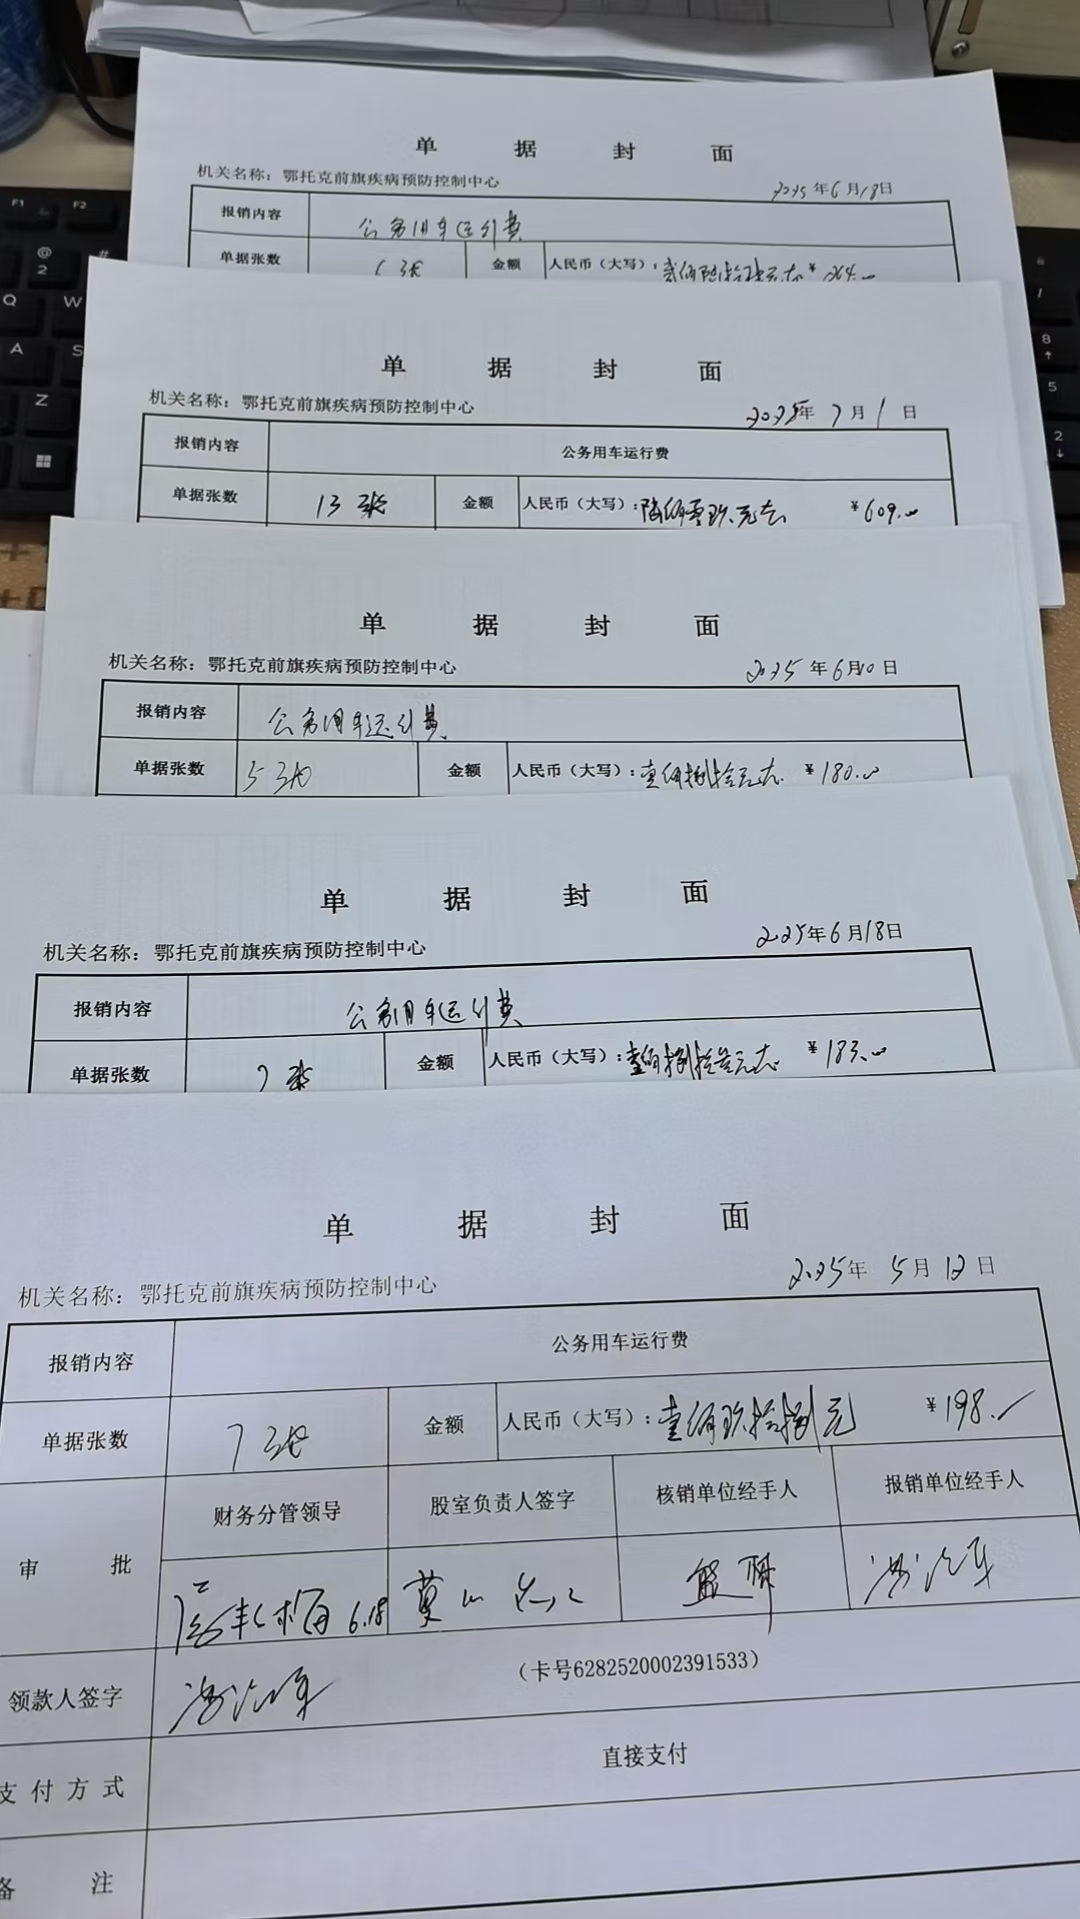 单 据 封 面
机关名称：鄂托克前旗疾病预防控制中心 2025年6月18日
报销内容 公务用车运行费
单据张数 张 金额 人民币（大写）： ¥264.00
单 据 封 面
机关名称：鄂托克前旗疾病预防控制中心 2025年7月1日
报销内容 公务用车运行费
单据张数 13张 金额 人民币（大写）：陆佰零玖元 ¥609.00
单 据 封 面
机关名称：鄂托克前旗疾病预防控制中心 2025年6月10日
报销内容 公务用车运行费
单据张数 5张 金额 人民币（大写）：壹佰捌拾元 ¥180.00
单 据 封 面
机关名称：鄂托克前旗疾病预防控制中心 2025年6月18日
报销内容 公务用车运行费
单据张数 7张 金额 人民币（大写）：壹佰捌拾叁元 ¥183.00
单 据 封 面
机关名称：鄂托克前旗疾病预防控制中心 2025年5月12日
报销内容 公务用车运行费
单据张数 7张 金额 人民币（大写）：壹佰玖拾捌元 ¥198.
审 批 财务分管领导 股室负责人签字 核销单位经手人 报销单位经手人
6.18
领款人签字 （卡号6282520002391533）
支付方式 直接支付
备 注